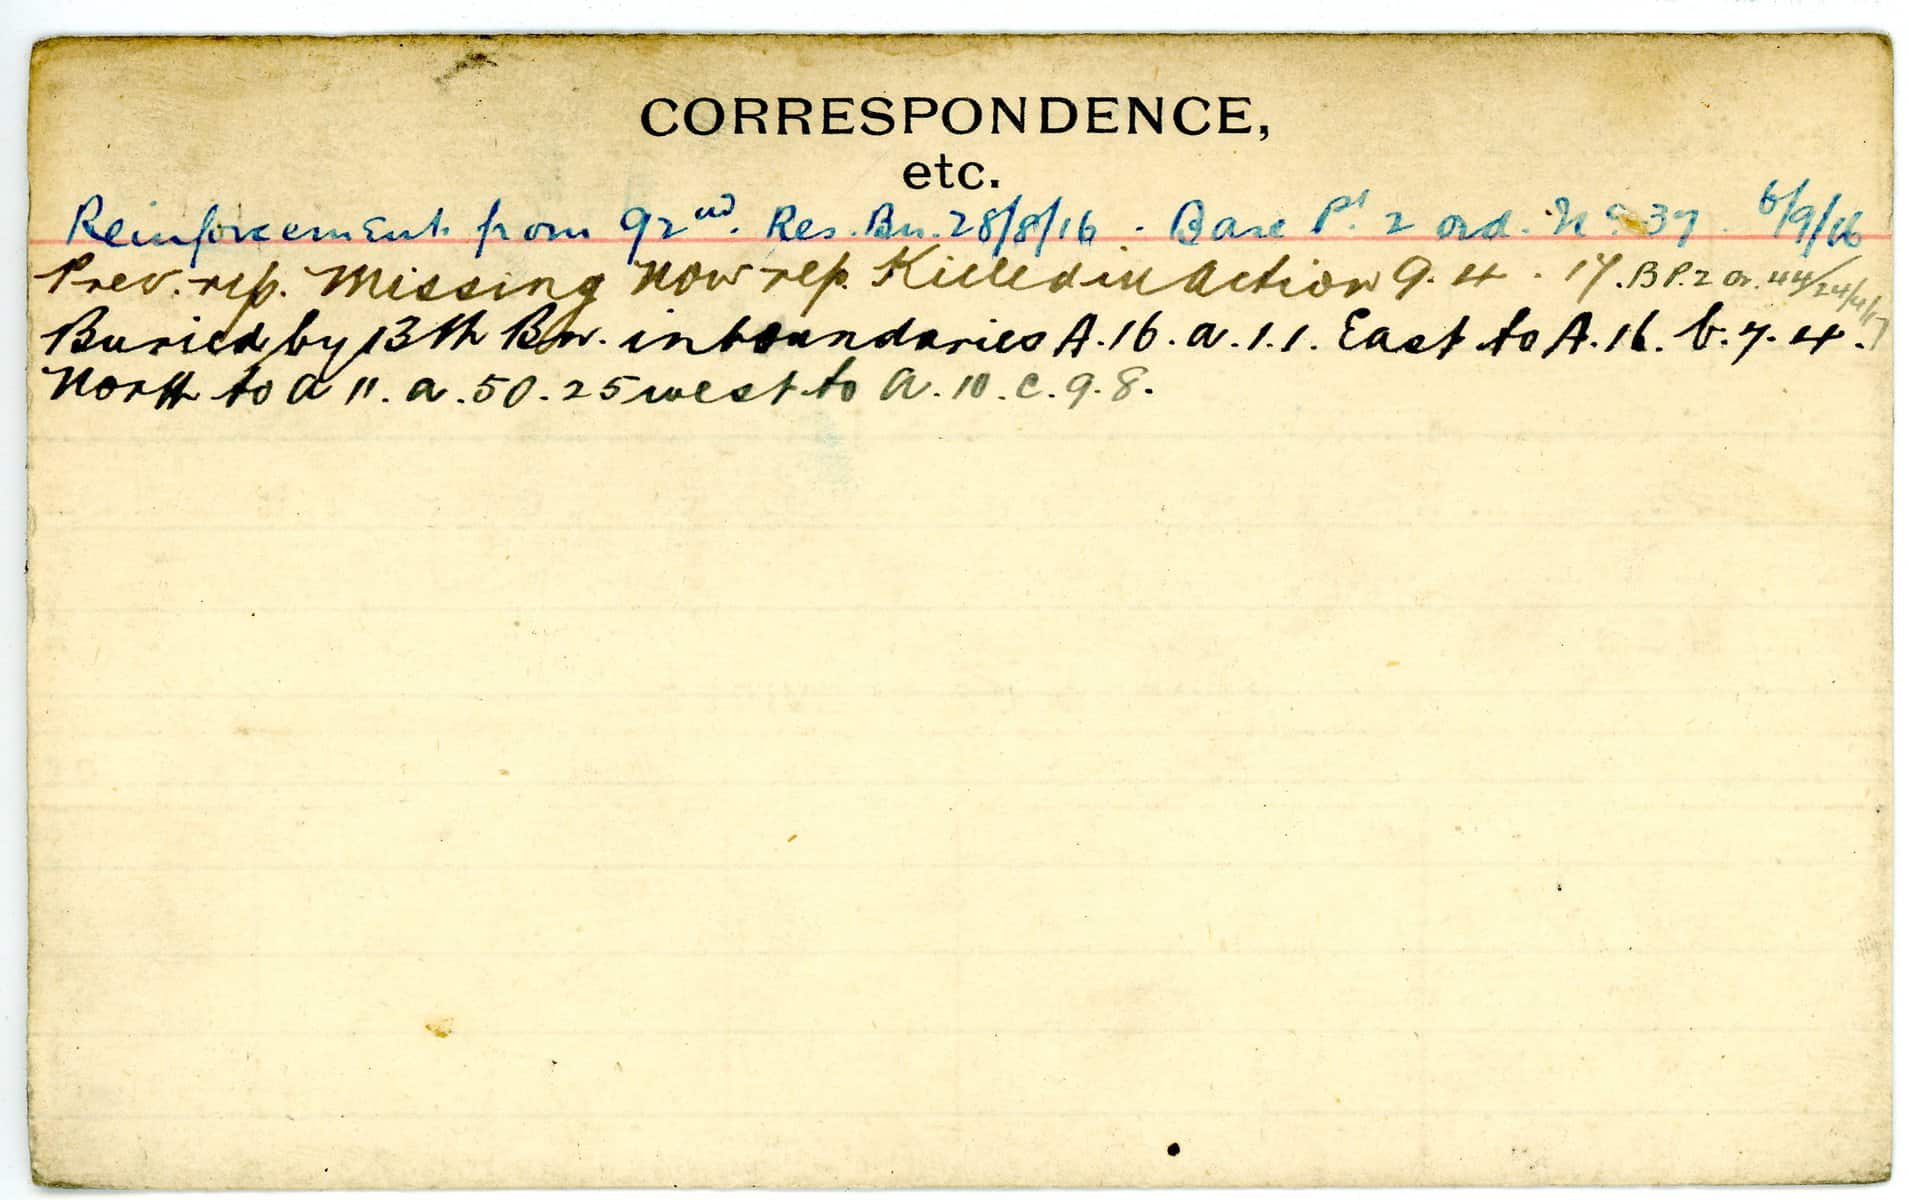 CORRESPONDENCE,
etc.
Reinforcement from 92nd. Res. Bn. 28/8/16 . Base Pt 2 ord. No 37. 6/9/16
Prev. rep. Missing Now rep. Killed in Action 9.4.17. B P.2 or. 44/24/4/17
Buried by 13th Bn. in boundaries A.16.a.1.1. East to A.16.b.7.4.
North to a 11.a.50.25 west to a.10.c.9.8.